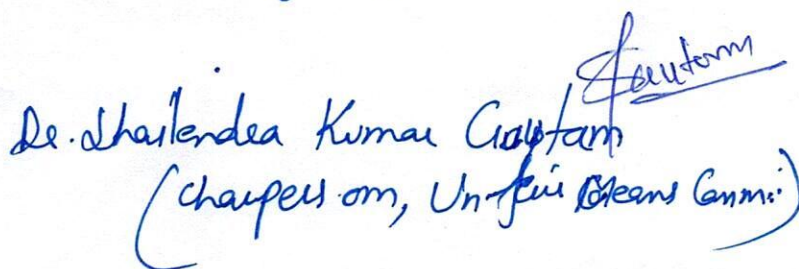 Gautam
Dr. Shailendra Kumar Gautam
(Chairperson, Unfair Means Comm:)